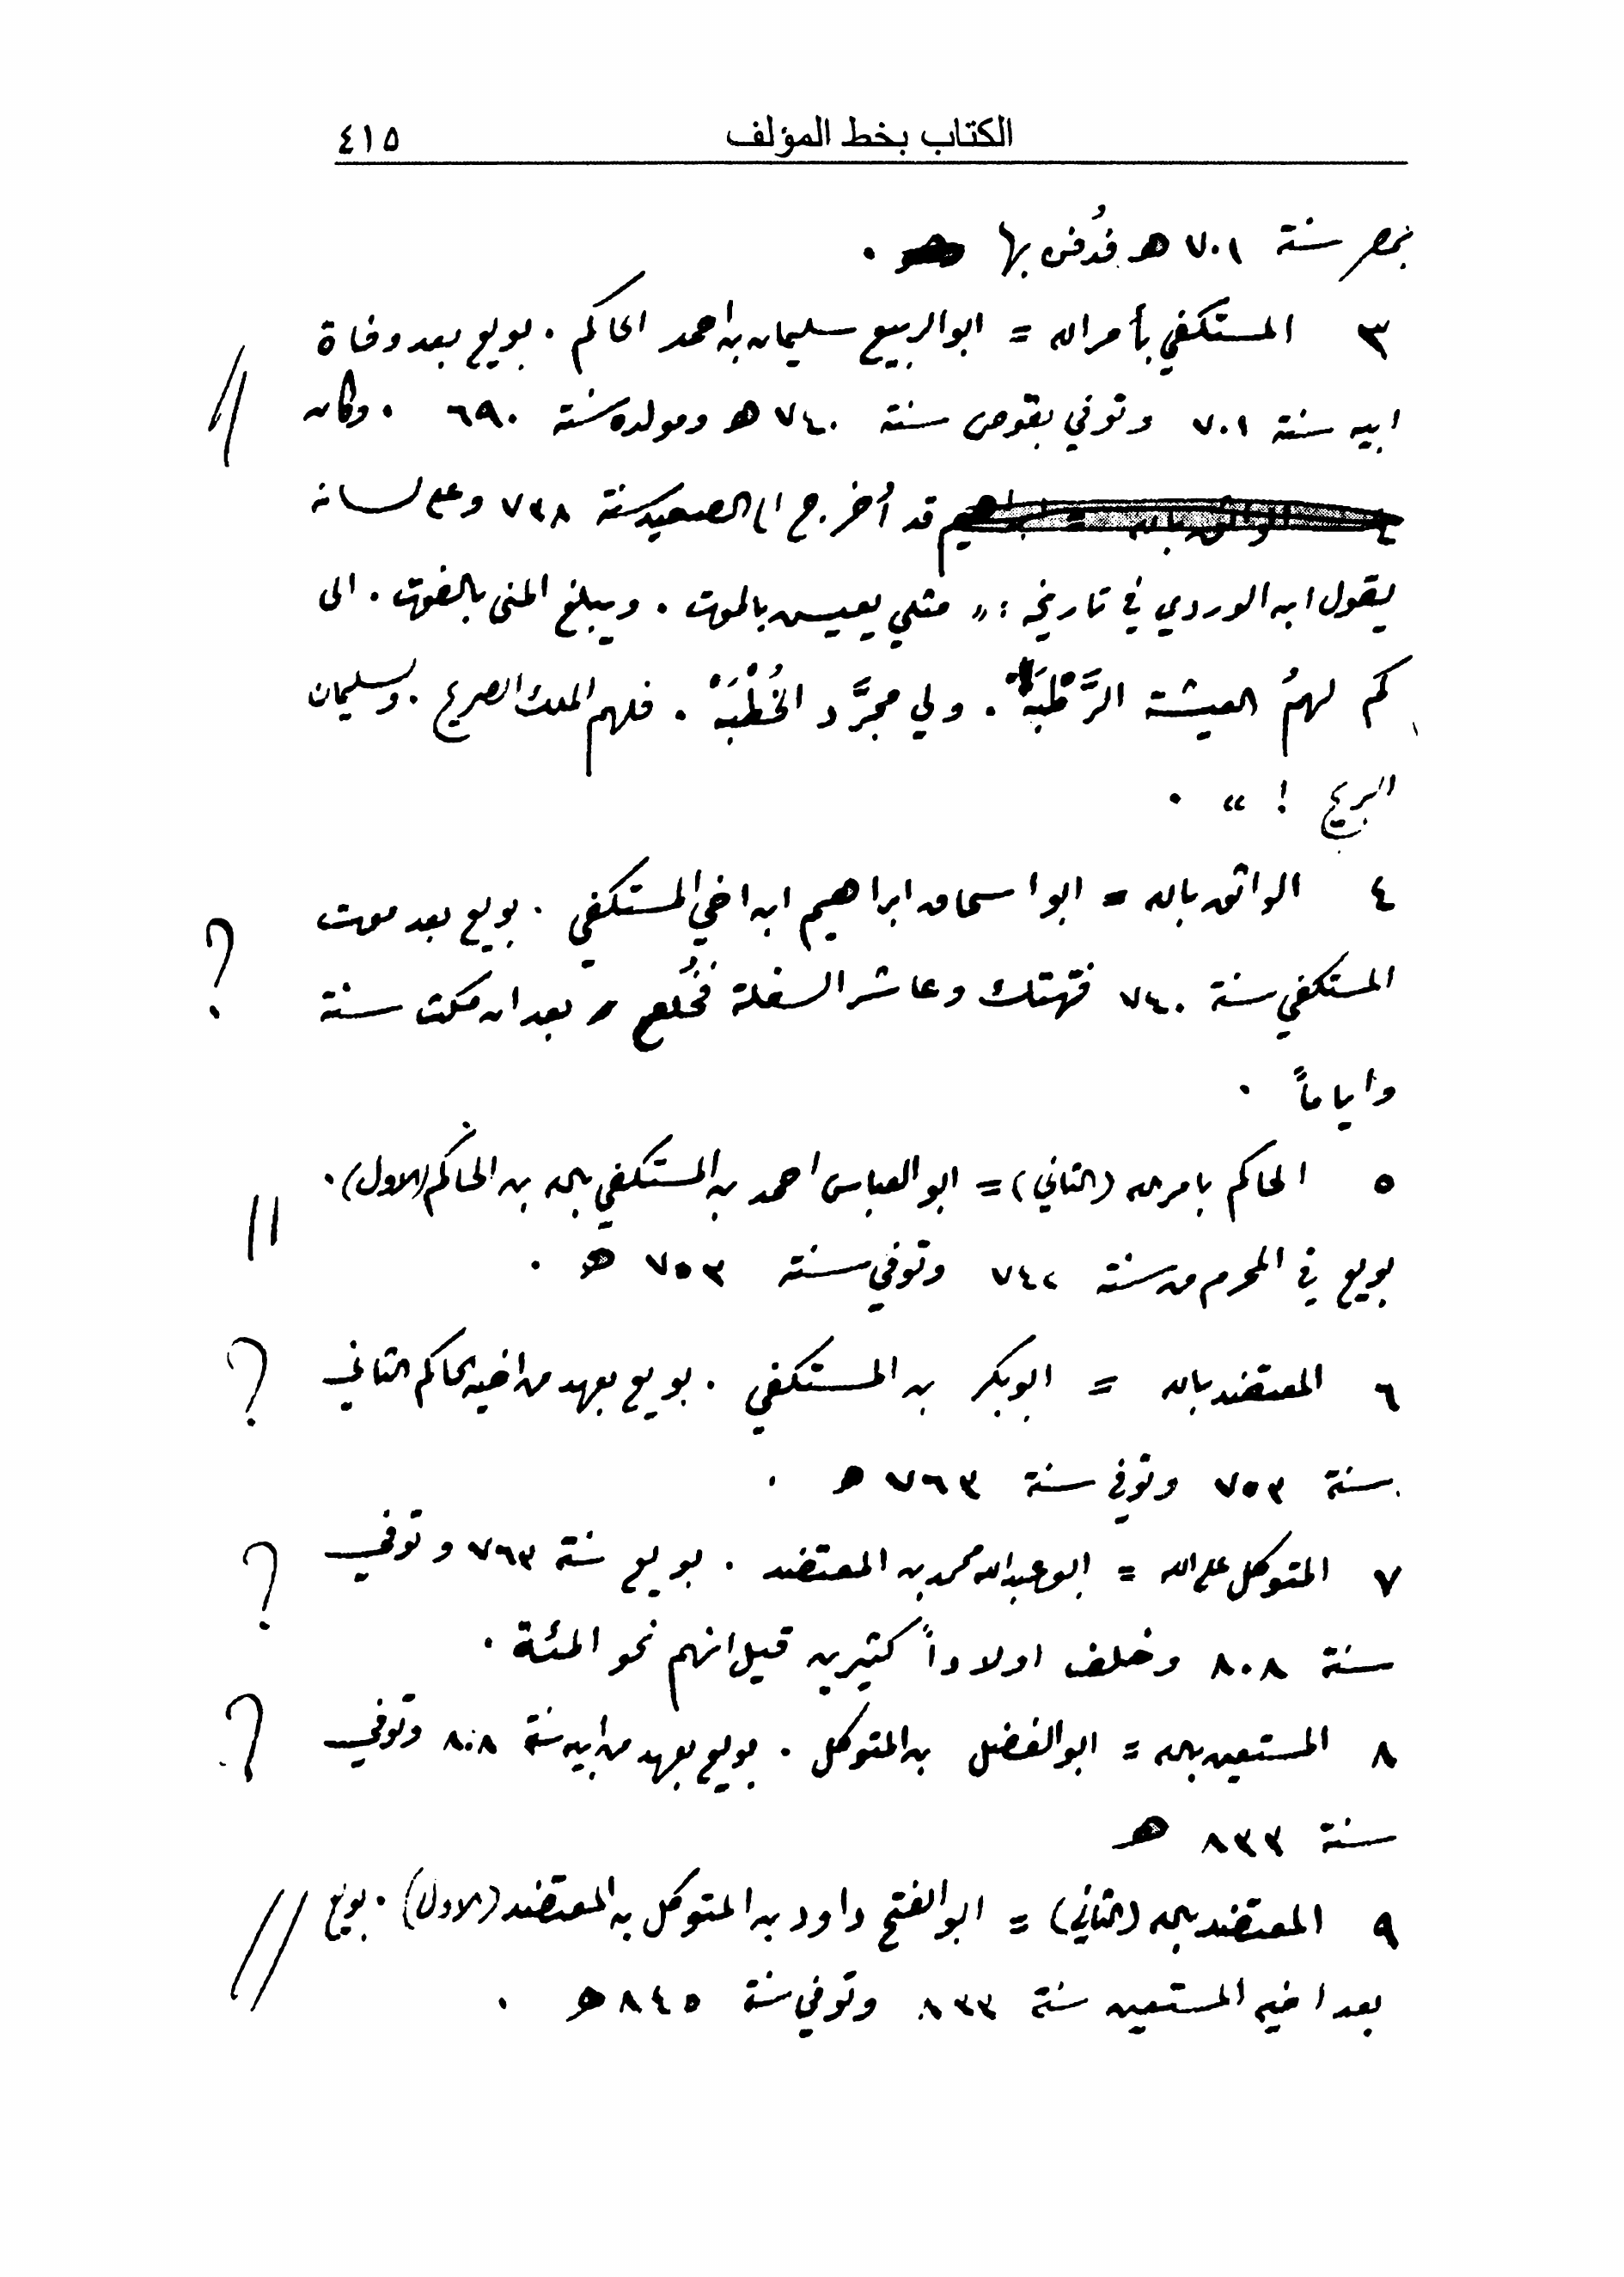 الكتاب بخط المؤلف ٤١٥
بمصر سنة ٧٠١ هـ فدُفن بها .
٣ المستكفي بأمر الله = ابو الربيع سليمان بن احمد الحاكم . بويع بعد وفاة
ابيه سنة ٧٠١ وتوفي بقوص سنة ٧٤٠ هـ ومولده سنة ٦٩٠ . وكان
قد أُخرج الى الصعيد سنة ٧٣٨ وعلى لسانه
يقول ابن الوردي في تاريخه : „ مثلي يعيش بالموت . ويبلغ المنى بالفوت . الى
كم لهمُ العيشة الرَّطْبَهْ . ولي مجرَّد الخُطْبَهْ . فلهم الملك الصريح . ولسليمان
الريح ! “ .
٤ الواثق بالله = ابو اسحاق ابراهيم ابن اخي المستكفي . بويع بعد موت
المستكفي سنة ٧٤٠ فتهتك وعاشر السفلة فخُلع بعد ان مكث سنة
واياماً .
٥ الحاكم بامر الله (الثاني) = ابو العباس احمد بن المستكفي بالله بن الحاكم (الاول) .
بويع في المحرم من سنة ٧٤٢ وتوفي سنة ٧٥٣ هـ .
٦ المعتضد بالله = ابو بكر بن المستكفي . بويع بعهد من اخيه الحاكم الثاني
سنة ٧٥٣ وتوفي سنة ٧٦٣ هـ .
٧ المتوكل على الله = ابو عبد الله محمد بن المعتضد . بويع سنة ٧٦٣ وتوفي
سنة ٨٠٨ وخلف اولاداً كثيرين قيل انهم نحو المئة .
٨ المستعين بالله = ابو الفضل بن المتوكل . بويع بعهد من ابيه سنة ٨٠٨ وتوفي
سنة ٨٣٣ هـ
٩ المعتضد بالله (الثاني) = ابو الفتح داود بن المتوكل بن المعتضد (الاول) . بويع
بعد اخيه المستعين سنة ٨٣٣ وتوفي سنة ٨٤٥ هـ .